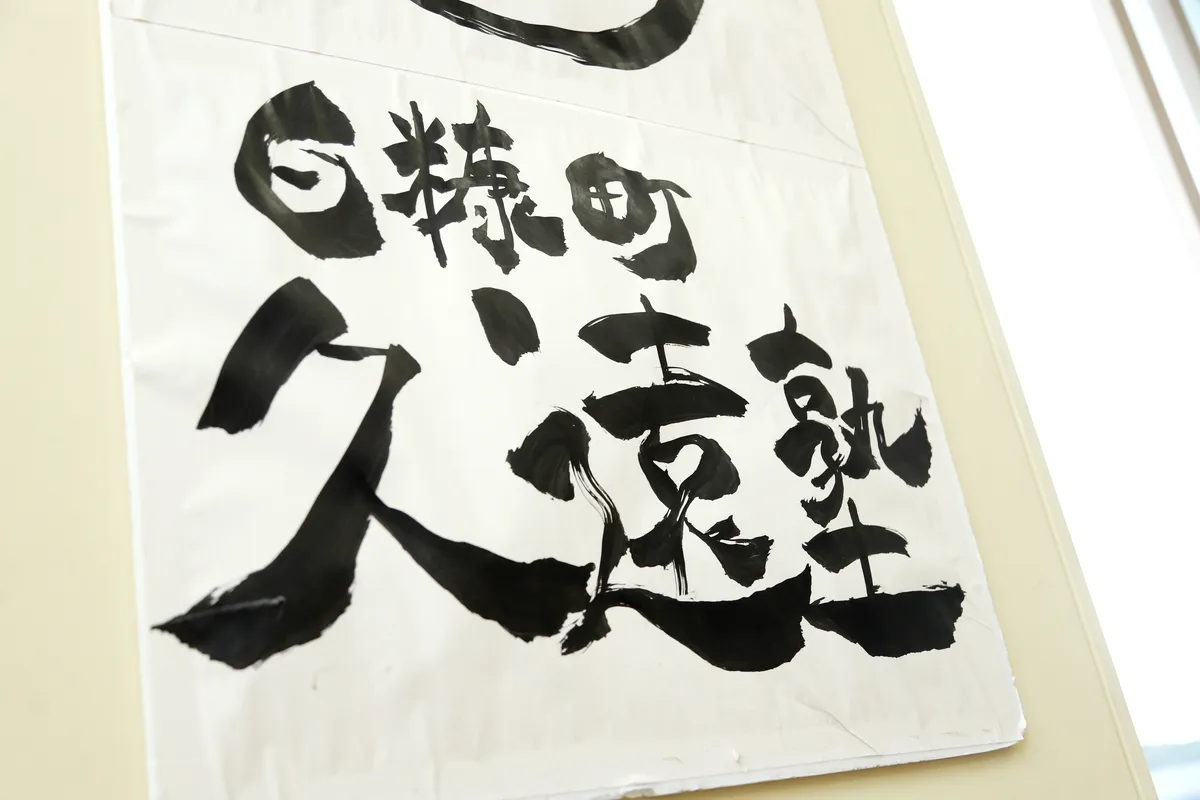 日糠町
久遠塾